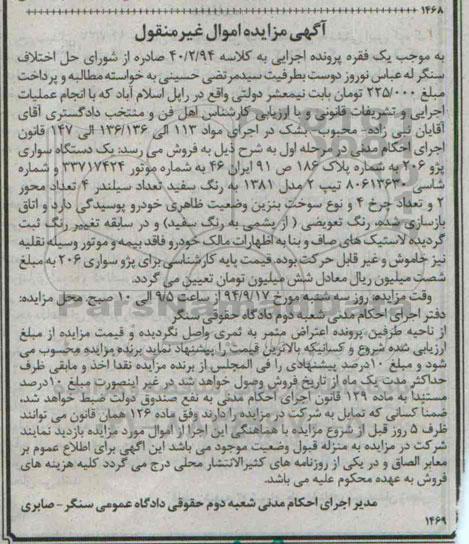 ۱۴۶۸
آگهی مزایده اموال غیر منقول
به موجب یک فقره پرونده اجرایی به کلاسه ۴۰/۲/۹۴ صادره از شورای حل اختلاف
سنگر له عباس نوروز دوست بطرفیت سیدمرتضی حسینی به خواسته مطالبه و پرداخت
مبلغ ۲۲۵/۰۰۰ تومان بابت نیمعشر دولتی واقع در راپل اسلام آباد که با انجام عملیات
اجرایی و تشریفات قانونی و با ارزیابی کارشناس اهل فن و منتخب دادگستری آقای
آقایان نبی زاده- محبوب- بشک در اجرای مواد ۱۱۳ الی ۱۳۶/۱۳۶ الی ۱۴۷ قانون
اجرای احکام مدنی در مرحله اول به شرح ذیل به فروش می رسد: یک دستگاه سواری
پژو ۲۰۶ به شماره پلاک ۱۸۶ ص ۹۱ ایران ۴۶ به شماره موتور ۳۳۷۱۷۴۲۴ و شماره
شاسی ۸۰۶۱۳۶۳۰ تیپ ۲ مدل ۱۳۸۱ به رنگ سفید تعداد سیلندر ۴ تعداد محور
۲ و تعداد چرخ ۴ و نوع سوخت بنزین وضعیت ظاهری خودرو پوسیدگی دارد و اتاق
بازسازی شده، رنگ تعویضی ( از یشمی به رنگ سفید) و در سابقه تغییر رنگ ثبت
گردیده لاستیک های صاف و بنا به اظهارات مالک خودرو فاقد بیمه و موتور وسیله نقلیه
نیز خاموش و غیر قابل حرکت بوده، قیمت پایه کارشناسی برای پژو سواری ۲۰۶ به مبلغ
شصت میلیون ریال معادل شش میلیون تومان تعیین می گردد.
وقت مزایده: روز سه شنبه مورخ ۹۴/۹/۱۷ از ساعت ۹/۵ الی ۱۰ صبح. محل مزایده:
دفتر اجرای احکام مدنی شعبه دوم دادگاه حقوقی سنگر
از ناحیه طرفین پرونده اعتراض مثمر به ثمری واصل نگردیده و قیمت مزایده از مبلغ
ارزیابی شده شروع و کسانیکه بالاترین قیمت را پیشنهاد نماید برنده مزایده محسوب می
شود و مبلغ ۱۰درصد پیشنهادی را فی المجلس از برنده مزایده نقدا اخذ و مابقی ظرف
حداکثر مدت یک ماه از تاریخ فروش وصول خواهد شد در غیر اینصورت مبلغ ۱۰درصد
مستندا به ماده ۱۲۹ قانون اجرای احکام مدنی به نفع صندوق دولت ضبط خواهد شد،
ضمنا کسانی که تمایل به شرکت در مزایده را دارند وفق ماده ۱۲۶ همان قانون می توانند
ظرف ۵ روز قبل از شروع مزایده با هماهنگی این اجرا از اموال مورد مزایده بازدید نمایند
شرکت در مزایده به منزله قبول وضعیت موجود می باشد این آگهی برای اطلاع عموم بر
معابر الصاق و در یکی از روزنامه های کثیرالانتشار محلی درج می گردد کلیه هزینه های
فروش به عهده محکوم علیه می باشد.
مدیر اجرای احکام مدنی شعبه دوم حقوقی دادگاه عمومی سنگر - صابری
۱۴۶۹